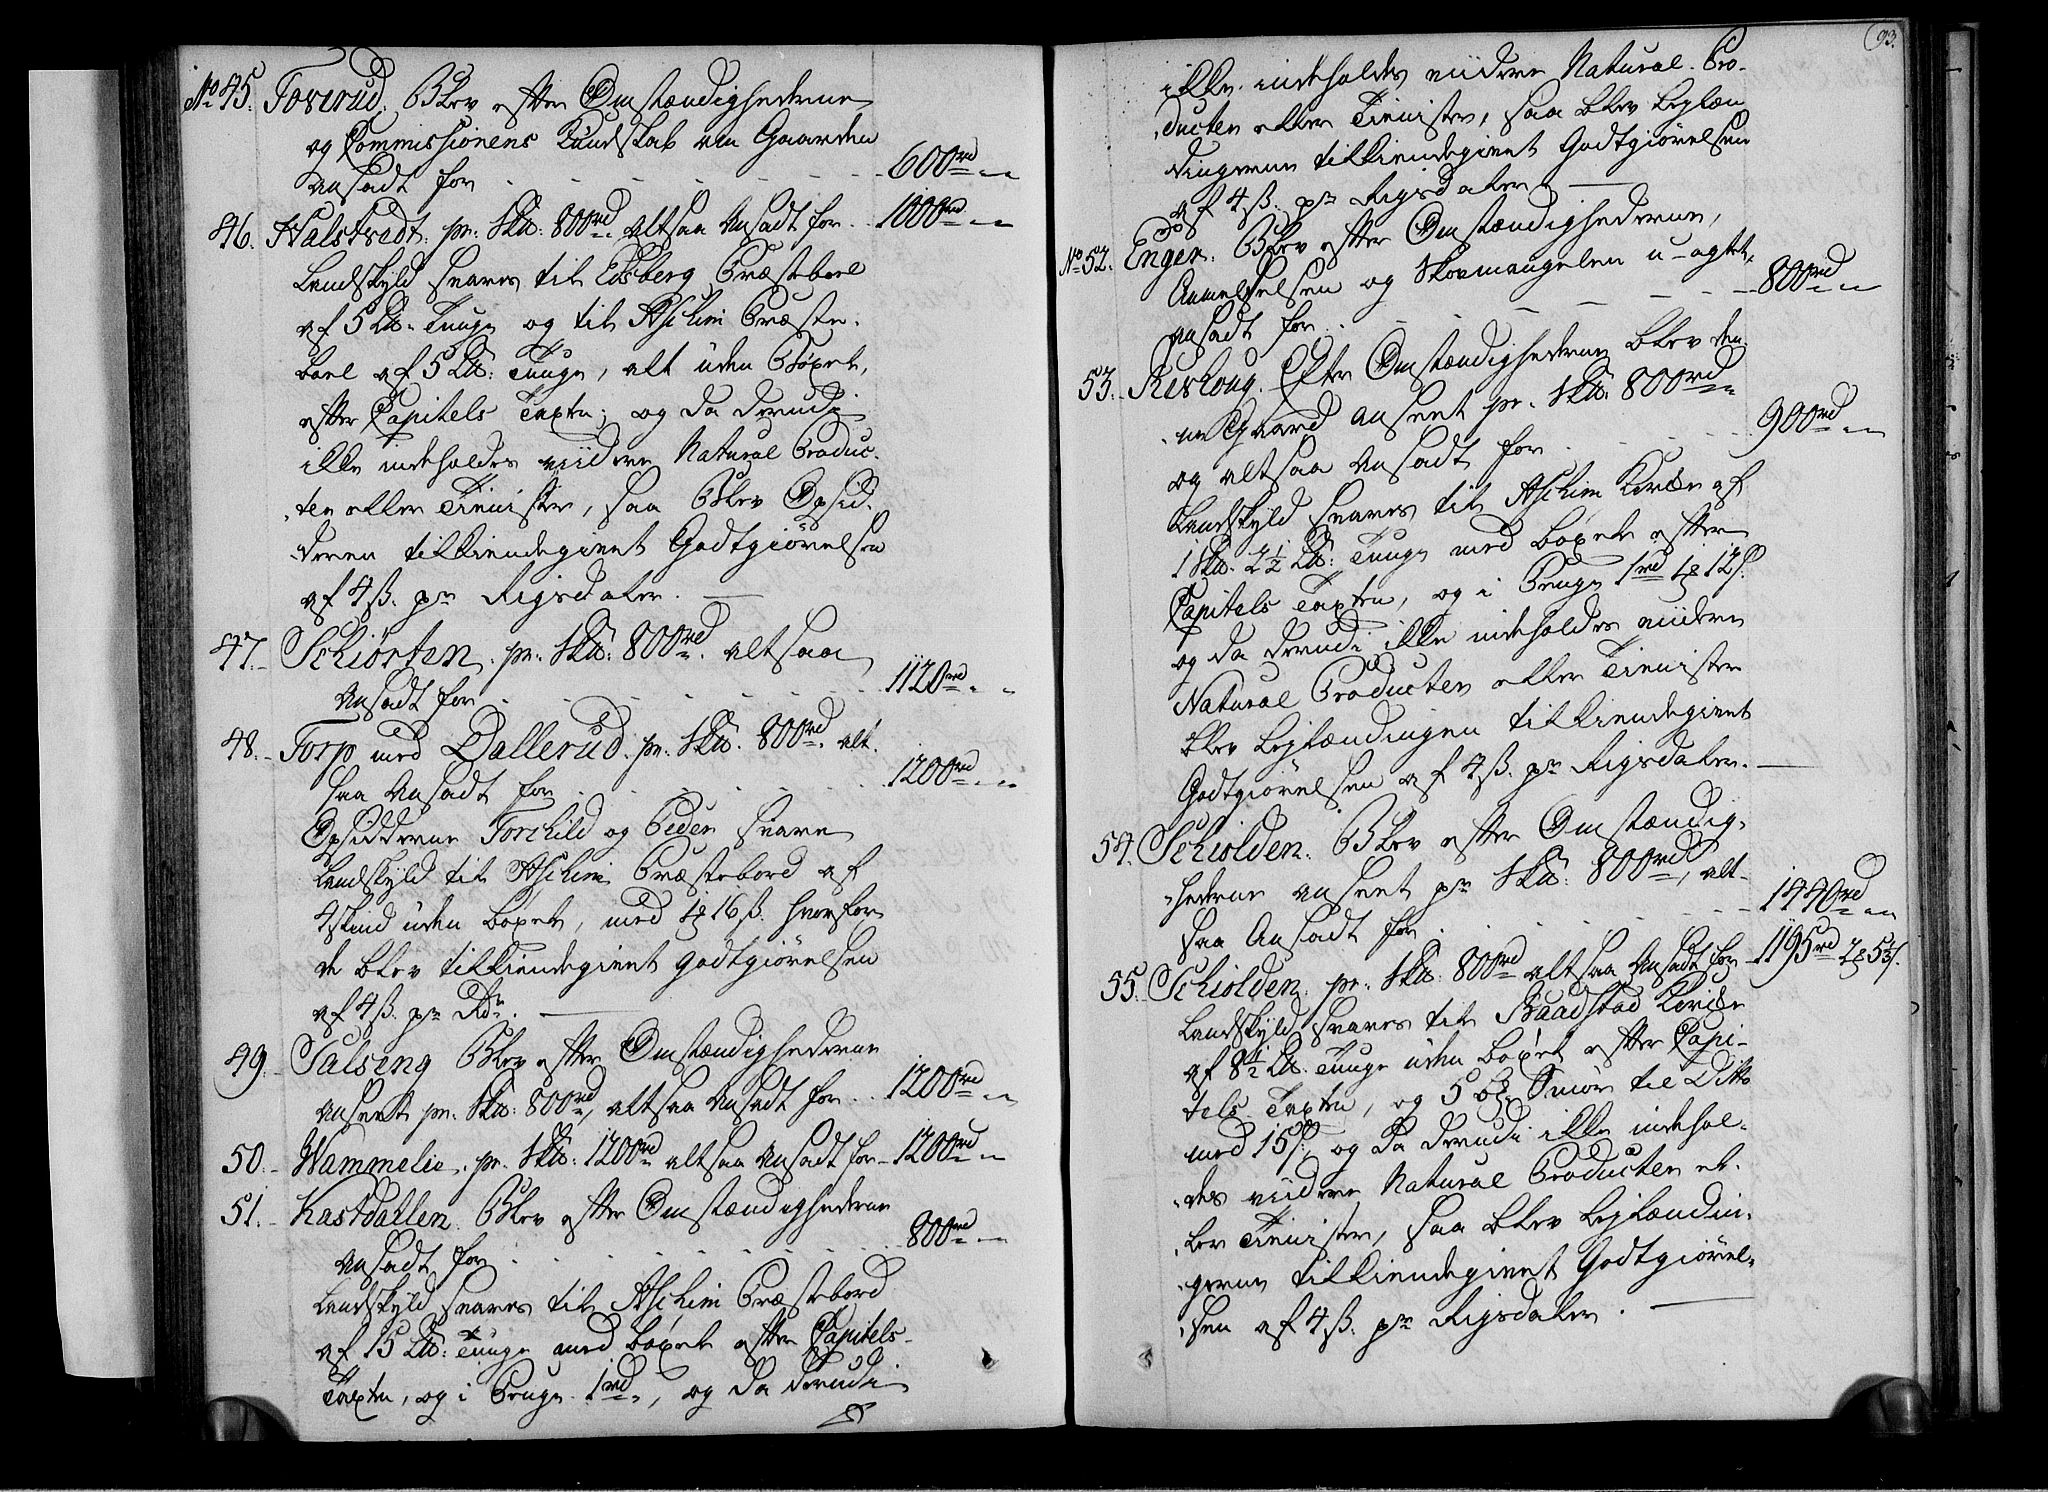 No 45. Toverud. Blev efter Omstændighederne
og Commissionens Kundskab om Gaarden
ansadt for . . . . . . . 600rd „ „
46. Halstvedt. pr. Skd: 800rd. altsaa Ansadt for . . 1000rd „ „
Landskyld svares til Edsberg Præsteboel
af 5 Ld. Tunge og til Aschim Præste-
boel af 5 Ld: Tunge, alt uden Bøxel,
efter Capitels Taxten; og da derudi
ikke indeholdes viidere Natural Produc-
ten eller Tienister, saa Blev Opsid-
deren tilkiendegivet Godtgiørelsen
af 4 ß. pr Rigsdaler.
47. Schiørten. pr. Skd: 800rd. altsaa
Ansadt for . . . . . . . 1120rd „ „
48. Torp med Dallerud. pr. Skd. 800rd. alt-
saa Ansadt for . . . . . . . 1200rd „ „
Opsidderne Torchild og Peder svare
Landskyld til Aschim Præstebord af
4 skind uden Boxel, med 1 16 ß. hvorfor
de blev tilkiendegivet Godtgiørelsen
af 4 ß. pr Rdr.
49. Salseng Blev efter Omstændighederne
Anseet pr. Skd: 800rd, altsaa Ansadt for . . 1200rd „ „
50. Wammelie. pr. Skd: 1200rd altsaa Ansadt for 1200rd „ „
51. Kastdallen. Blev efter Omstændighederne
Ansadt for . . . . . . . 800rd „ „
Landskyld svares til Aschim Præstebord
af 15 Ld: Tunge med Boxel efter Capitels
Taxten, og i Penge 1rd „, og da derudi
93.
ikke indeholdes viidere Natural Pro-
ducter eller Tienister, saa blev Leylæn-
dingerne tilkiendegivet Godtgiørelsen
af 4 ß. pr Rigsdaler.
No 52. Enger. Blev efter Omstændighederne,
Anmeldelsen og Skovmangelen u-agtet,
ansadt for . . . . . . . 800rd „ „
53. Reshoug. Efter Omstændighederne blev den-
ne Gaard anseet pr. Skd: 800rd „
og altsaa Ansadt for . . . . 900rd „ „
Landskyld svares til Aschim Kirke af
1 Skd. 2½ Ld: Tunge med Boxel efter
Capitels Taxten, og i Penge 1rd 1 12 ß.
og da derudi ikke indeholdes viidere
Natural Producter eller Tienister
blev Leylændingen tilkiendegivet
Godtgiørelsen af 4 ß. pr Rigsdaler.
54. Schiolden. Blev efter Omstændig-
hederne anseet pr Skd: 800rd, alt-
saa Ansadt for . . . . . . . 1440rd „ „
55. Schiolden. pr. Skd. 800rd altsaa Ansadt for 1195rd 2 5⅓ ß.
Landskyld svares til Baadstad Kirke
af 8½ Ld. Tunge uden Boxel efter Capi-
tels Taxten, og 5 Smør til Ditto
med 15 ß. og da derudi ikke indehol-
des viidere Natural Producter el-
ler Tienister, saa blev Leylændin-
gerne tilkiendegivet Godtgiørel-
sen af 4 ß. pr Rigsdaler.